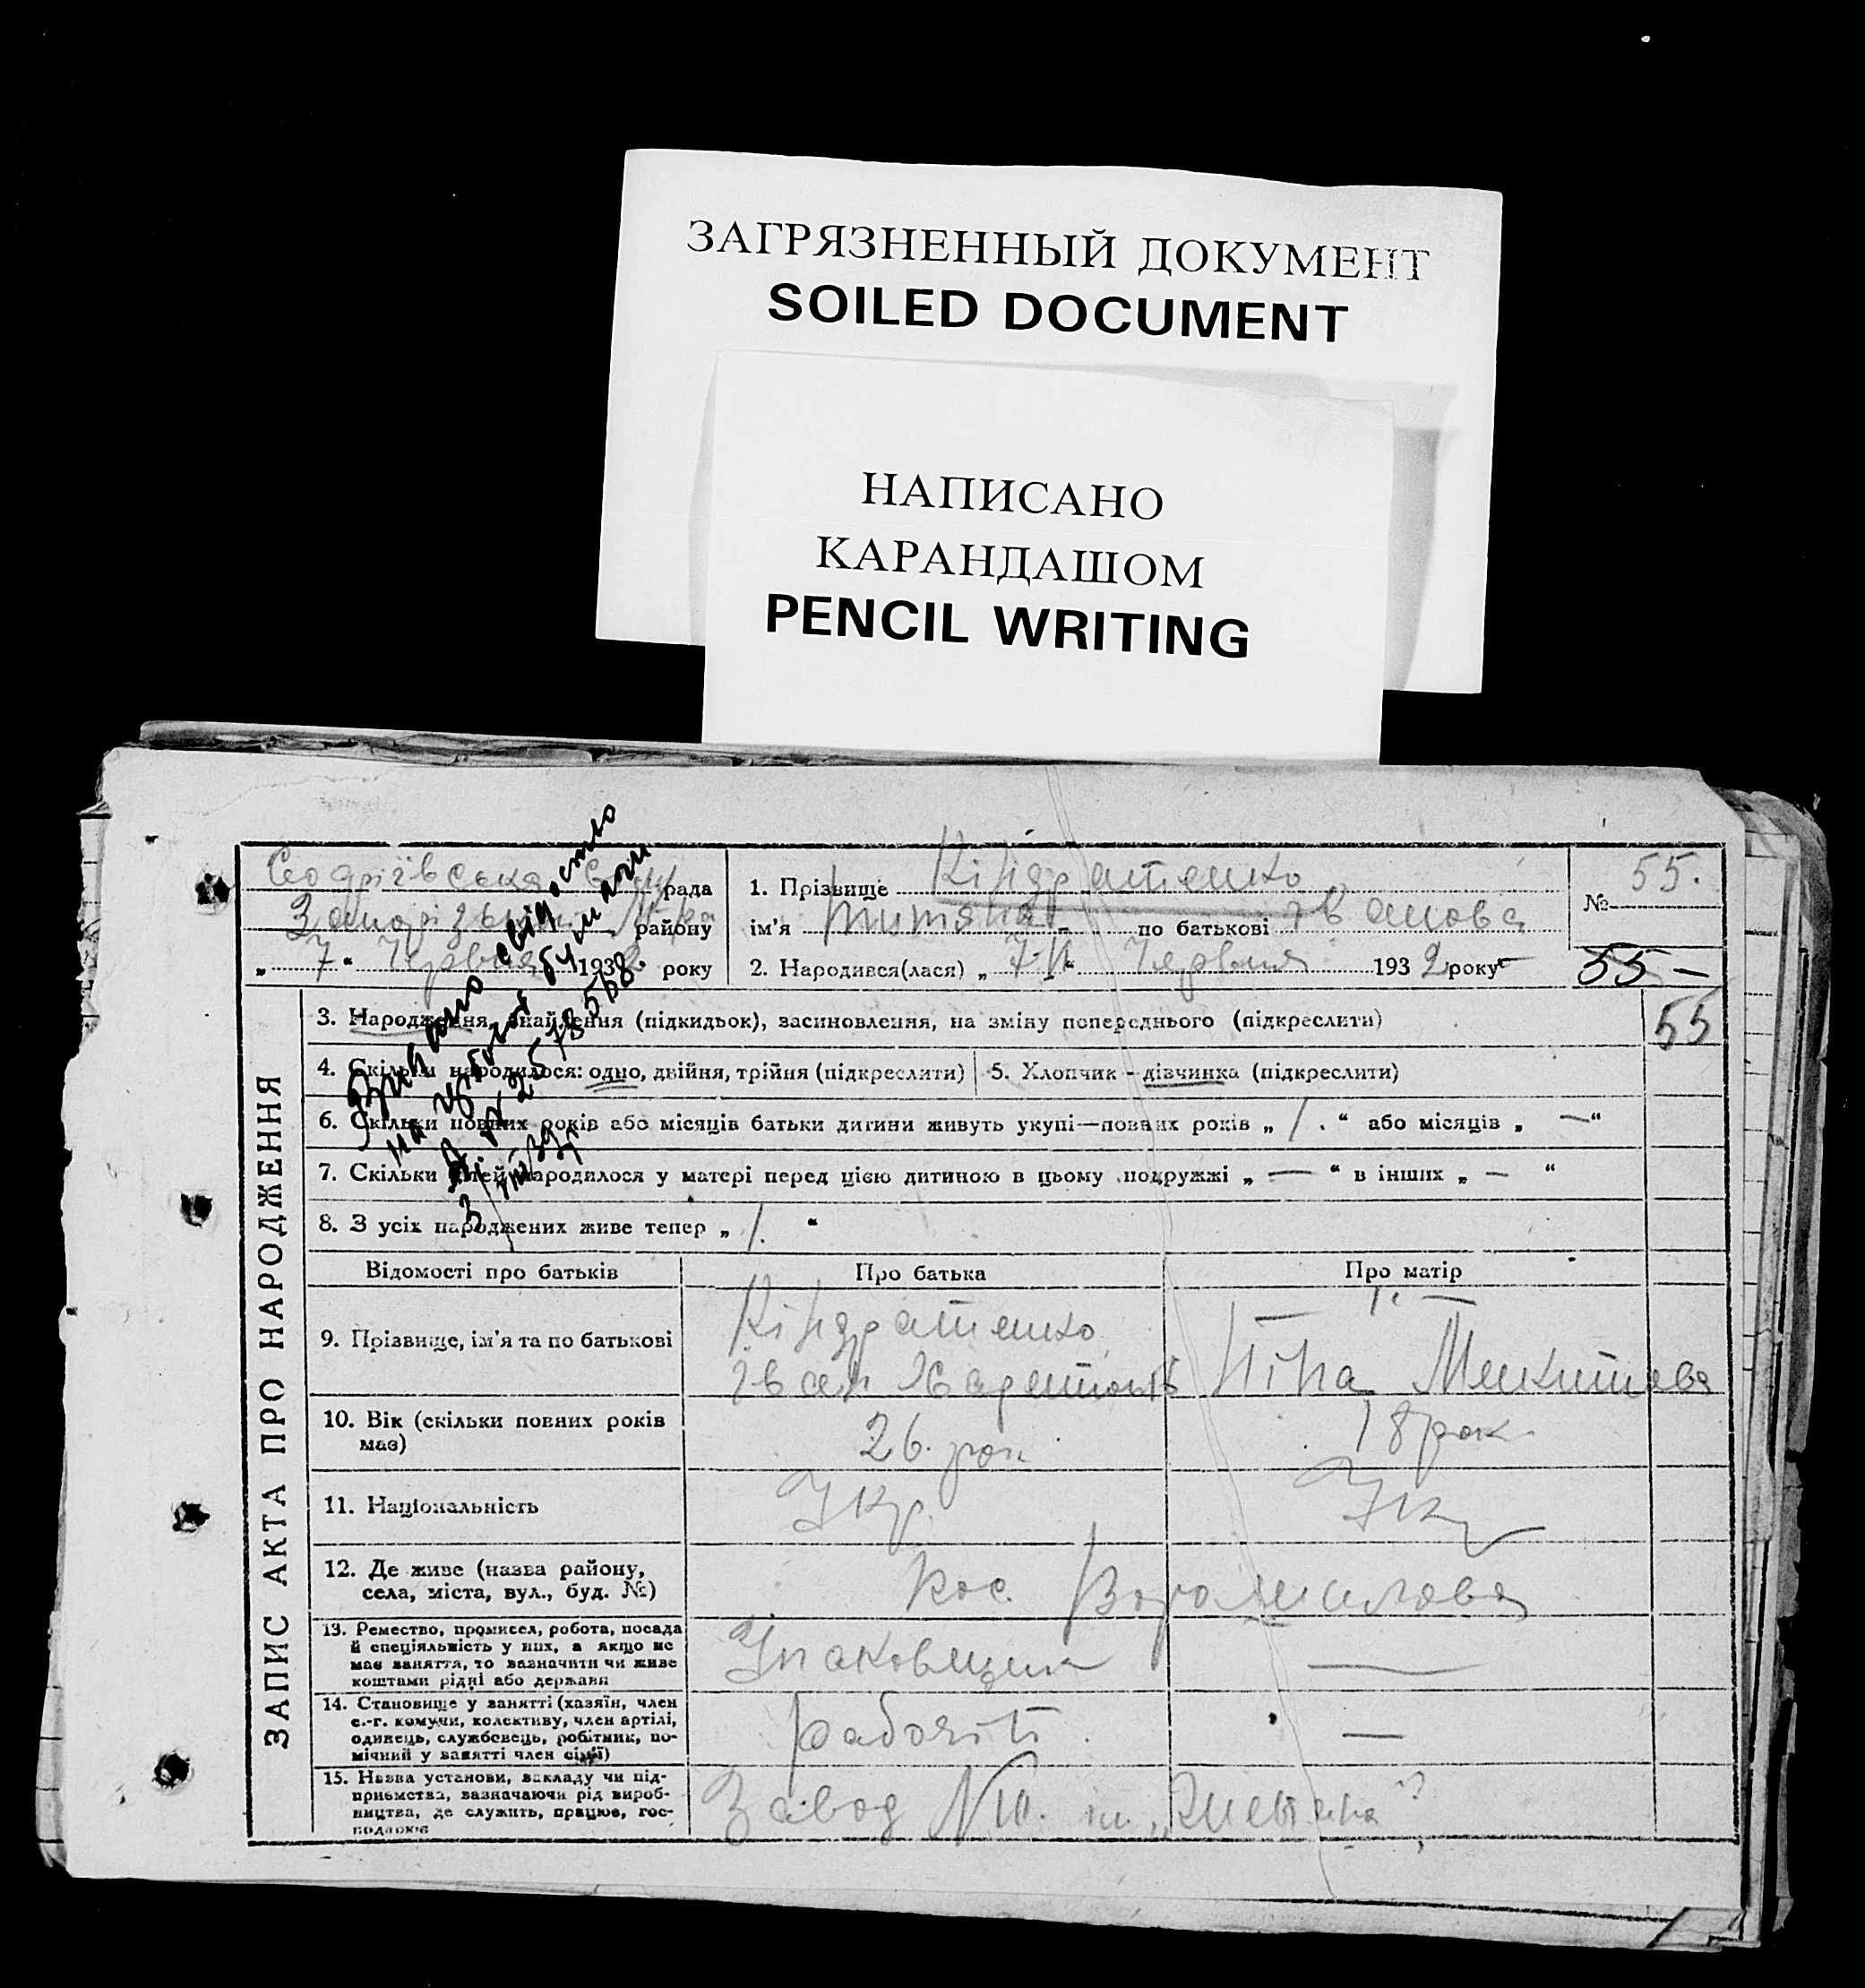 ЗАГРЯЗНЕННЫЙ ДОКУМЕНТ
SOILED DOCUMENT
НАПИСАНО
КАРАНДАШОМ
PENCIL WRITING
ЗАПИС АКТА ПРО НАРОДЖЕННЯ
рада
району
„ 7 “ Червня 1932 року
1. Прізвище Кіндратенко
ім'я по батькові Іванова
2. Народився(лася) „ 7-го “ Червня 1932 року
№ 55.
55 —
55
3. Народження, знайдення (підкидьок), засиновлення, на зміну попереднього (підкреслити)
4. Скільки народилося: одно, двійня, трійня (підкреслити) 5. Хлопчик - дівчинка (підкреслити)
6. Скільки повних років або місяців батьки дитини живуть укупі—повних років „ 1. “ або місяців „ — “
7. Скільки дітей народилося у матері перед цією дитиною в цьому подружжі „ — “ в інших „ — “
8. З усіх народжених живе тепер „ 1. “
Відомості про батьків Про батька Про матір
9. Прізвище, ім'я та по батькові
Кіндратенко — ". —
Іван Ніна Микитова
10. Вік (скільки повних років
має)
26. рок 18 рок
11. Національність Укр. Укр
12. Де живе (назва району,
села, міста, вул., буд. №)
пос. Ворошилова
13. Ремество, промисел, робота, посада
й спеціяльність у них, а якщо не
має заняття, то зазначити чи живе
коштами рідні або держави
Упаковщик —
14. Становище у занятті (хазяїн, член
с.-г. комуни, колективу, член артілі,
одинець, службовець, робітник, по-
мічний у занятті член сім'ї)
рабочій —
15. Назва установи, закладу чи під-
приємства, зазначаючи рід вироб-
ництва, де служить, працює, гос-
подарює
Завод